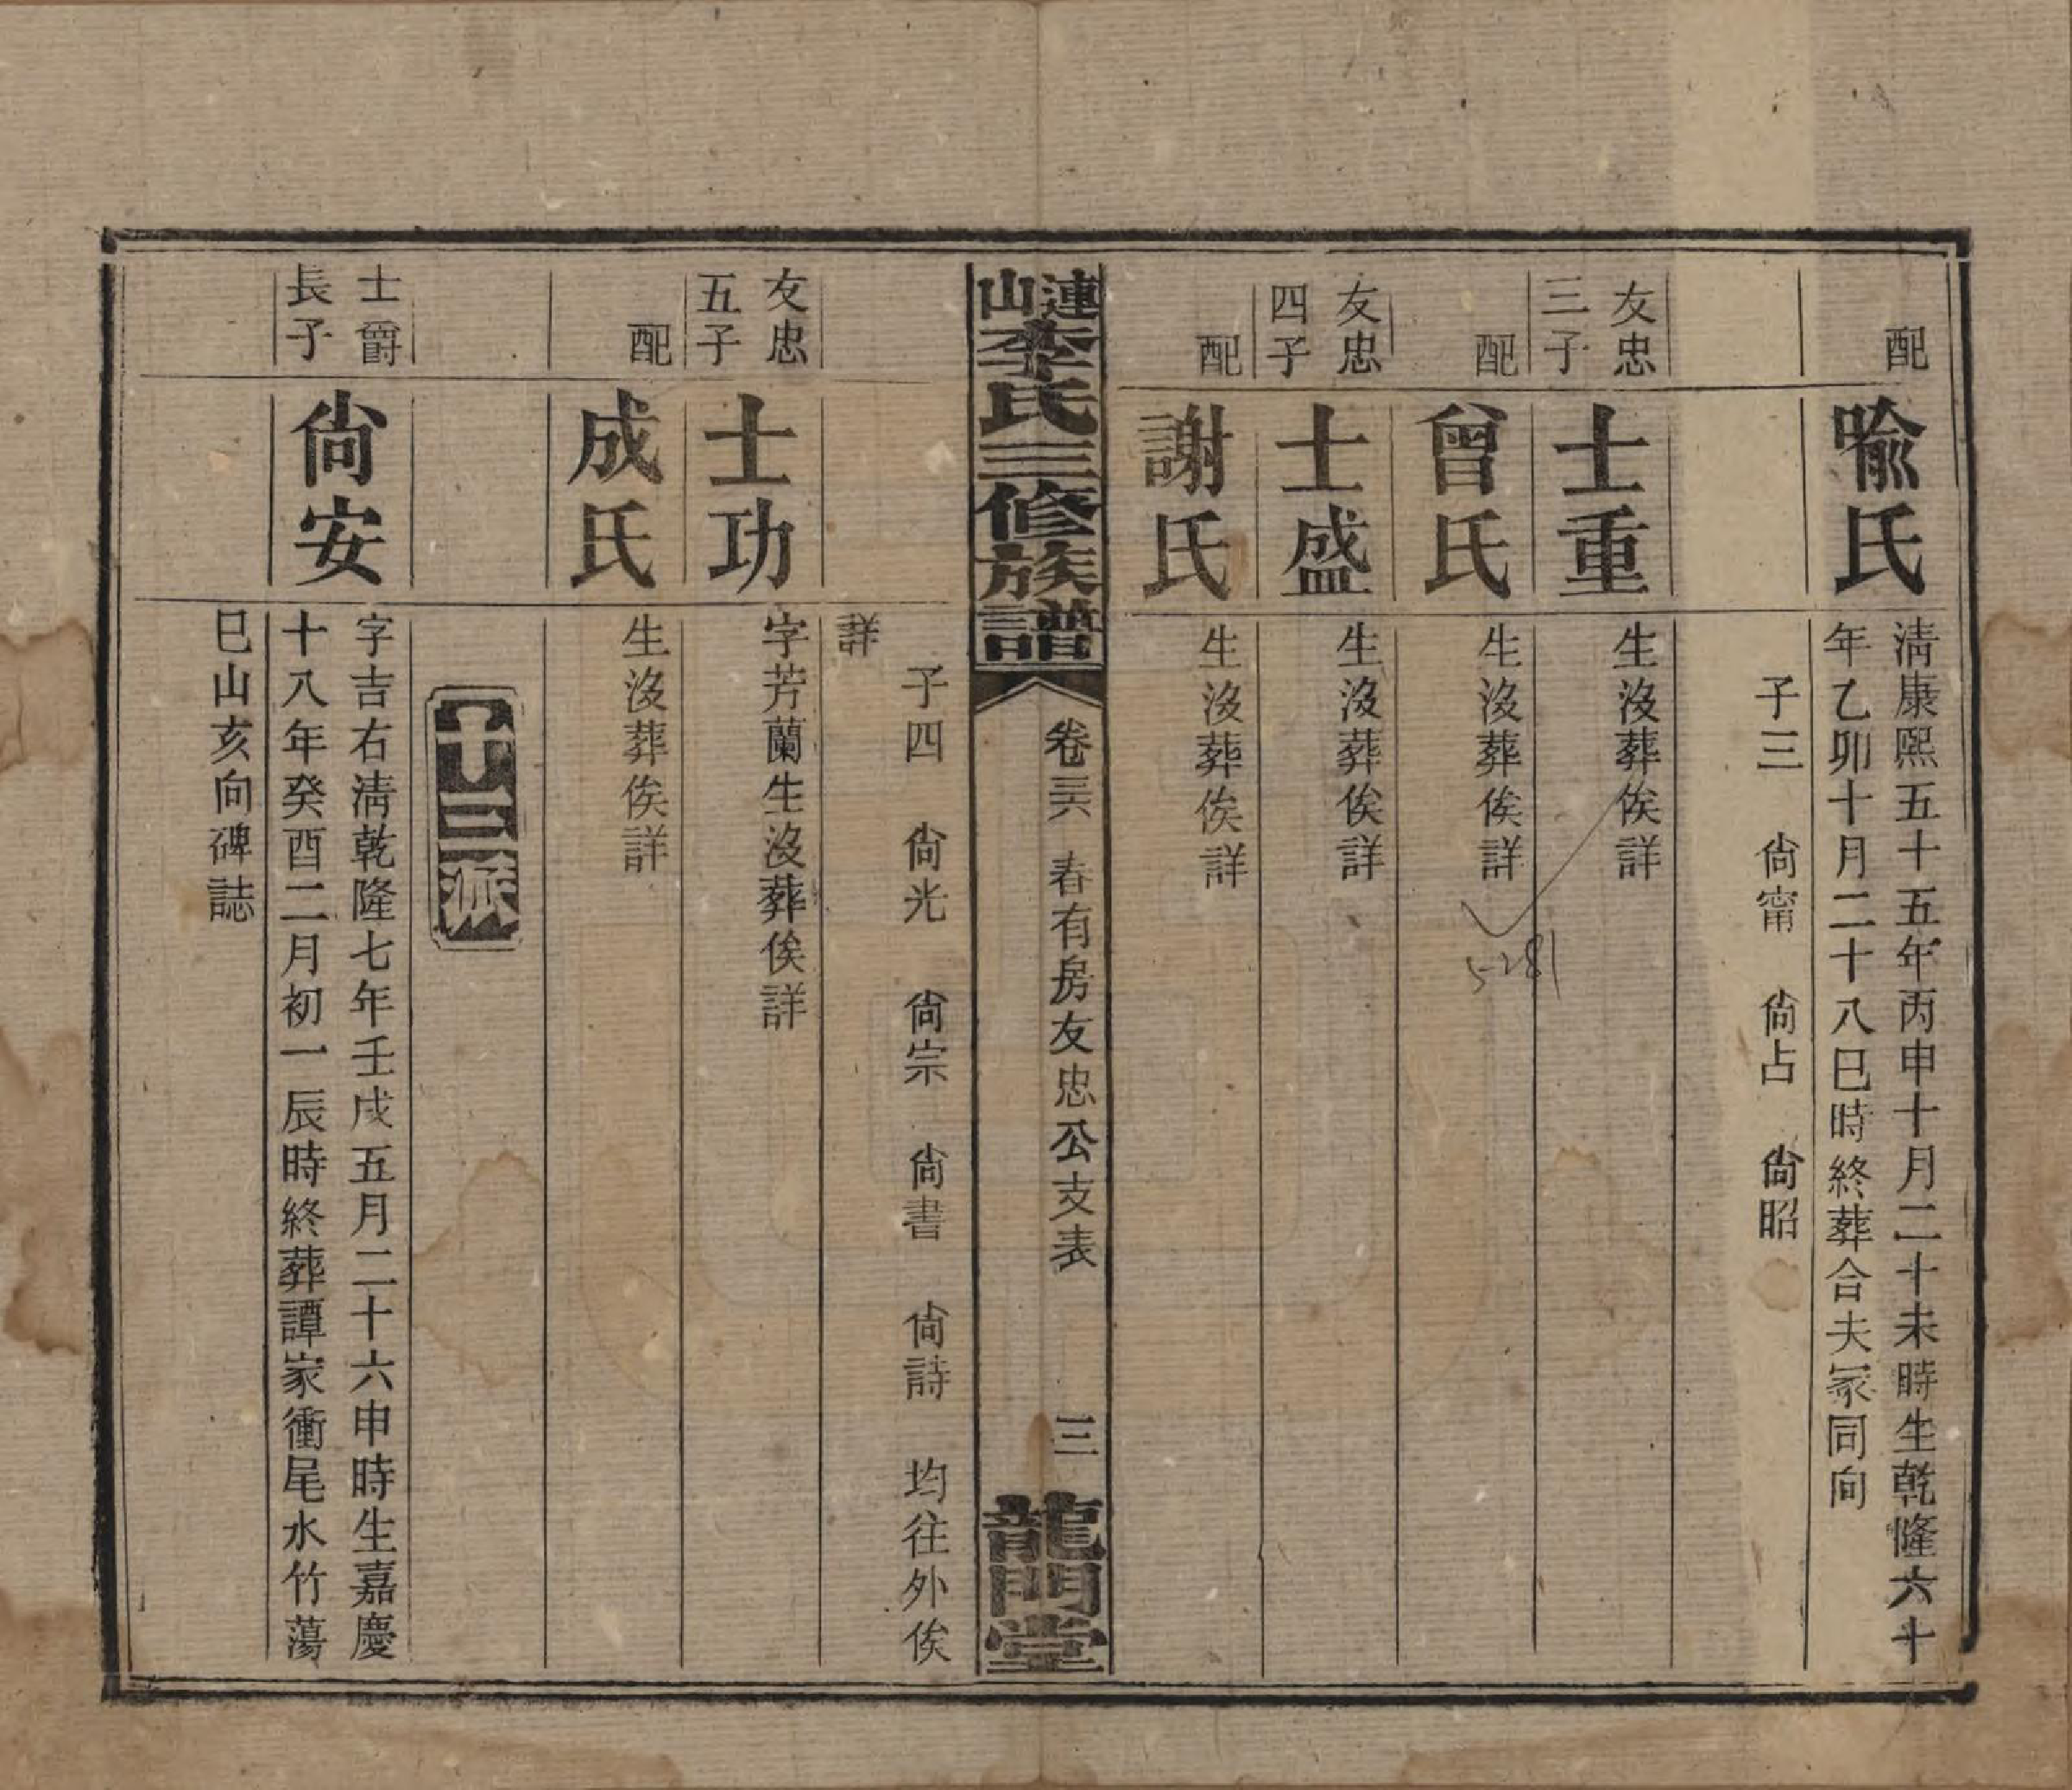 配
喩氏
淸康熙五十五年丙申十月二十未時生乾隆六十
年乙卯十月二十八巳時終葬合夫冢同向
子三　尙甯　尙占　尙昭
友忠
三子
士重
生沒葬俟詳
配
曾氏
生沒葬俟詳
友忠
四子
士盛
生沒葬俟詳
配
謝氏
生沒葬俟詳
5281
連山李氏三修族譜
卷三六　春有房友忠公支表
三
龍門堂
子四　尙光　尙宗　尙書　尙詩　均往外俟
詳
友忠
五子
士功
字芳蘭生沒葬俟詳
配
成氏
生沒葬俟詳
十三派
士爵
長子
尙安
字吉右淸乾隆七年壬戌五月二十六申時生嘉慶
十八年癸酉二月初一辰時終葬譚家衝尾水竹蕩
巳山亥向碑誌